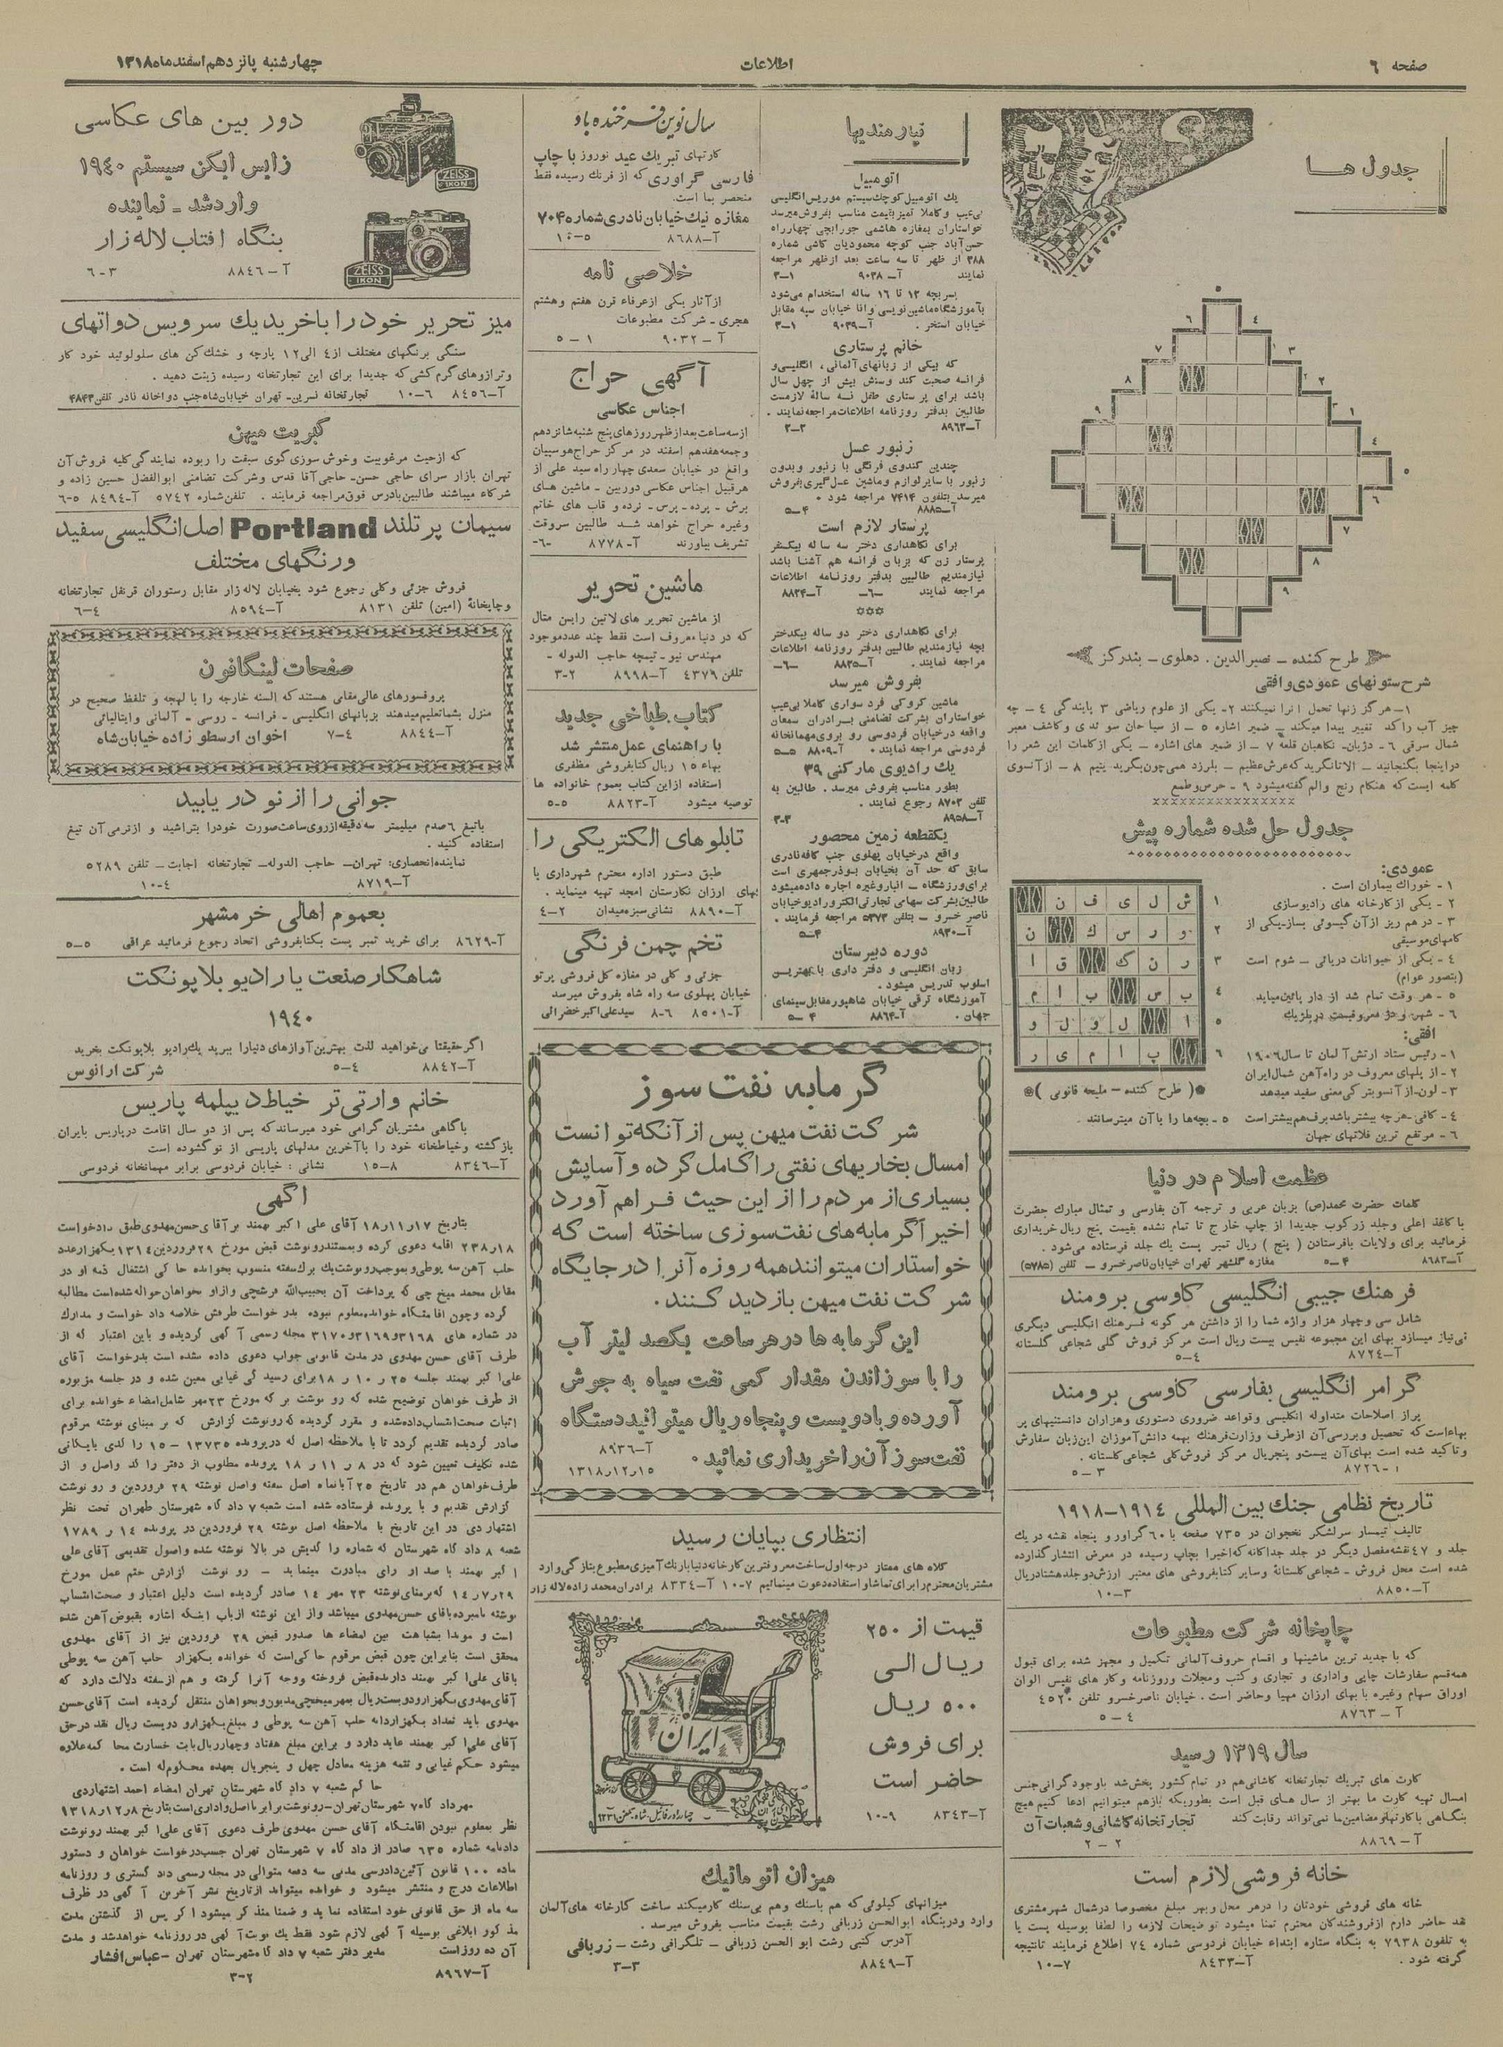 صفحه ۶
اطلاعات
چهارشنبه پانزدهم اسفندماه ۱۳۱۸
جدول ها
طرح کننده - نصیرالدین . دهلوی - بندرگز
شرح ستونهای عمودی وافقی
۱- هرگز زنها تحمل آنرا نمیکنند ۲- یکی از علوم ریاضی ۳ پایندگی ۴ - چه
چیز آب راکد تغییر پیدا میکند - ضمیر اشاره ۵ - از سیاحان سوئدی وکاشف معبر
شمال شرقی ۶ - دژبان- نگاهبان قلعه ۷ - از ضمیر های اشاره - یکی ازکلمات این شعر را
دراینجا بگنجانید - الاتانگرید که عرش عظیم - بلرزد همی چون بگرید یتیم ۸ - ازآنسوی
کلمه ایست که هنگام رنج والم گفته میشود ۹ - حرس وطمع
جدول حل شده شماره پیش
عمودی:
۱ - خوراك بیماران است .
۲ - یکی ازکارخانه های رادیوسازی
۳ - درهم ریز ازآن گیسوئی بساز-یکی از
کامهای موسیقی
۴ - یکی از حیوانات دریائی - شوم است
(بتصور عوام)
۵ - هر وقت تمام شد از دار پائین میاید
افقی:
۱ - رئیس ستاد ارتش آلمان تا سال ۱۹۰۶
۲ - از پلهای معروف در راه آهن شمال ایران
۳ - لون-ازآنسوبتر کی معنی سفید میدهد
۴ - کافی-هرچه بیشتر باشد برف هم بیشتر است
۵ - بچه ها را باآن میترسانند
۶ - مرتفع ترین فلاتهای جهان
۱ ش ل ی ف ن
۲ و ر س ك ن
۳ ر ن ك ق ا
۴ ب س ب ا م
۵ ا ل و ل و
۶ پ ا م ی ر
( طرح کننده - ملیحه قانونی )
عظمت اسلام در دنیا
کلمات حضرت محمد(ص) بزبان عربی و ترجمه آن بفارسی و تمثال مبارك حضرت
باکاغذ اعلی وجلد زرکوب جدیدا از چاپ خارج تا تمام نشده بقیمت پنج ریال خریداری
فرمائید برای ولایات بافرستادن ( پنج ) ریال تمبر پست یك جلد فرستاده می‌شود .
آ-۸۶۸۳ ۴-۵ مغازه گلشهر تهران خیابان ناصرخسرو - تلفن (۵۷۸۵)
فرهنك جیبی انگلیسی کاوسی برومند
شامل سی وچهار هزار واژه شما را از داشتن هر گونه فرهنك انگلیسی دیگری
بی‌نیاز میسازد بهای این مجموعه نفیس بیست ریال است مرکز فروش کلی شجاعی گلستانه
آ-۸۷۲۴ ۴-۵
گرامر انگلیسی بفارسی کاوسی برومند
پراز اصلاحات متداوله انگلیسی وقواعد ضروری دستوری وهزاران دانستنیهای پر
بهاء است که تحصیل وبررسی آن ازطرف وزارت فرهنك بهمه دانش آموزان این زبان سفارش
وتاکید شده است بهای آن بیست وپنجریال مرکز فروش کلی شجاعی گلستانه .
۱-۸۷۲۶ ۳-۵
تاریخ نظامی جنك بین المللی ۱۹۱۴-۱۹۱۸
تالیف تیمسار سرلشکر نخجوان در ۷۳۵ صفحه با ۶۰ گراور و پنجاه نقشه در یك
جلد و ۴۷ نقشه مفصل دیگر در جلد جداگانه که اخیرا بچاپ رسیده در معرض انتشار گذارده
شده است محل فروش - شجاعی گلستانهٔ وسایر کتابفروشی های معتبر ارزش دوجلد هشتادریال
آ-۸۸۵۰ ۳-۱۰
چاپخانه شرکت مطبوعات
که با جدید ترین ماشینها و اقسام حروف آلمانی تکمیل و مجهز شده برای قبول
همه قسم سفارشات چاپی واداری و تجاری و کتب ومجلات وروزنامه وکار های نفیس الوان
اوراق سهام وغیره با بهای ارزان مهیا وحاضر است . خیابان ناصرخسرو تلفن ۴۵۲۰
آ-۸۷۶۳ ۴-۵
سال ۱۳۱۹ رسید
کارت های تبریك تجارتخانه کاشانی هم در تمام کشور پخش شد باوجود گرانی جنس
امسال تهیه کارت ما بهتر از سال های قبل است بطوریکه بازهم میتوانیم ادعا کنیم هیچ
بنگاهی باکارتهاومضامین ما نمی‌تواند رقابت کند تجارتخانه کاشانی وشعبات آن
آ-۸۸۶۹ ۲-۲
خانه فروشی لازم است
خانه های فروشی خودتان را درهر محل وبهر مبلغ مخصوصا درشمال شهر مشتری
نقد حاضر دارم ازفروشندگان محترم تمنا میشود توضیحات لازمه را لطفا بوسیله پست یا
به تلفون ۷۹۳۸ به بنگاه ستاره ابتداء خیابان فردوسی شماره ۷۴ اطلاع فرمایند تانتیجه
گرفته شود . آ-۸۴۳۳ ۷-۱۰
نیازمندیها
اتومبیل
یك اتومبیل کوچك سیستم موریس انگلیسی
بی‌عیب و کاملا تمیز بقیمت مناسب بفروش میرسد
خواستاران بمغازه هاشمی جورابچی چهارراه
حسن آباد جنب کوچه محمودیان کاشی شماره
۳۸۸ از ظهر تا سه ساعت بعد ازظهر مراجعه
نمایند آ-۹۰۳۸ ۱-۳
پسربچه ۱۲ تا ۱۶ ساله استخدام می‌شود
بآموزشگاه ماشین نویسی وانا خیابان سپه مقابل
خیابان استخر . آ-۹۰۳۹ ۱-۳
خانم پرستاری
که بیکی از زبانهای آلمانی، انگلیسی و
فرانسه صحبت کند وسنش بیش از چهل سال
باشد برای پرستاری طفل نه سالهٔ لازمست
طالبین بدفتر روزنامه اطلاعات مراجعه نمایند .
آ-۸۹۶۳ ۲-۳
زنبور عسل
چندین کندوی فرنگی با زنبور وبدون
زنبور با سایرلوازم وماشین عسل گیری بفروش
میرسد بتلفون ۷۴۱۴ مراجعه شود .
آ-۸۸۸۵ ۴-۵
پرستار لازم است
برای نگاهداری دختر سه ساله بیکنفر
پرستار زن که بزبان فرانسه هم آشنا باشد
نیازمندیم طالبین بدفتر روزنامه اطلاعات
مراجعه نمایند -۶- آ-۸۸۲۴
برای نگاهداری دختر دو ساله بیکدختر
بچه نیازمندیم طالبین بدفتر روزنامه اطلاعات
مراجعه نمایند. آ-۸۸۲۵ -۶-
بفروش میرسد
ماشین کروکی فرد سواری کاملا بی‌عیب
خواستاران بشرکت تضامنی برادران سمعان
واقعه درخیابان فردوسی رو بروی مهمانخانه
فردوسی مراجعه نمایند . آ-۸۸۰۹ ۵-۵
یك رادیوی مارکنی ۳۹
بطور مناسب بفروش میرسد . طالبین به
تلفن ۸۷۰۳ رجوع نمایند .
آ-۸۹۵۸ ۳-۳
یکقطعه زمین محصور
واقع درخیابان پهلوی جنب کافه نادری
سابق که حد آن بخیابان بوذرجمهری است
برای ورزشگاه - انبار وغیره اجاره داده میشود
طالبین بشرکت سهامی تجارتی الکترورادیو خیابان
ناصر خسرو - بتلفن ۵۳۷۳ مراجعه فرمایند .
آ-۸۹۳۰ ۴-۵
دوره دبیرستان
زبان انگلیسی و دفتر داری با بهترین
اسلوب تدریس میشود .
آموزشگاه ترقی خیابان شاهپور مقابل سینمای
جهان . آ-۸۸۶۴ ۴-۵
سال نوین فرخنده باد
کارتهای تبریك عید نوروز با چاپ
فارسی گراوری که از فرنك رسیده فقط
منحصر بما است.
مغازه نیك خیابان نادری شماره ۷۰۴
آ-۸۶۸۸ ۵-۱۰
خلاصی نامه
ازآثار یکی ازعرفاء قرن هفتم وهشتم
هجری - شرکت مطبوعات
آ-۹۰۳۲ ۱-۵
آگهی حراج
اجناس عکاسی
ازسه ساعت بعد ازظهر روزهای پنج شنبه شانزدهم
وجمعه هفدهم اسفند در مرکز حراج هوسپیان
واقع در خیابان سعدی چهار راه سید علی از
هرقبیل اجناس عکاسی دوربین - ماشین های
برش - پرده - پرس - نرده و قاب های خاتم
وغیره حراج خواهد شد طالبین سروقت
تشریف بیاورند آ-۸۷۷۸ -۶-
ماشین تحریر
از ماشین تحریر های لاتین راین متال
که در دنیا معروف است فقط چند عدد موجود
مهندس نیو - تیمچه حاجب الدوله -
تلفن ۴۳۷۹ آ-۸۹۹۸ ۲-۳
کتاب طباخی جدید
با راهنمای عمل منتشر شد
بهاء ۱۵ ریال کتابفروشی مظفری
استفاده ازاین کتاب بعموم خانواده ها
توصیه میشود آ-۸۸۲۳ ۵-۵
تابلوهای الکتریکی را
طبق دستور اداره محترم شهرداری با
بهای ارزان نگارستان امجد تهیه مینماید .
آ-۸۸۹۰ نشانی سبزه میدان ۲-۴
تخم چمن فرنگی
جزئی و کلی در مغازه کل فروشی پرتو
خیابان پهلوی سه راه شاه بفروش میرسد
آ-۸۵۰۱ ۶-۸ سیدعلی اکبر خضرائی
گرمابه نفت سوز
شرکت نفت میهن پس از آنکه توانست
امسال بخاریهای نفتی را کامل کرده و آسایش
بسیاری از مردم را از این حیث فراهم آورد
اخیرا گرمابه‌های نفت سوزی ساخته است که
خواستاران میتوانند همه روزه آنرا در جایگاه
شرکت نفت میهن بازدید کنند .
این گرمابه ها در هر ساعت یکصد لیتر آب
را با سوزاندن مقدار کمی نفت سیاه به جوش
آورده و با دویست و پنجاه ریال میتوانید دستگاه
نفت سوز آن را خریداری نمائید .
آ-۸۹۳۶
۱۵ر۱۲ر۱۳۱۸
انتظاری بپایان رسید
کلاه های ممتاز درجه اول ساخت معروفترین کارخانه دنیا بارنك آمیزی مطبوع بتازگی وارد
مشتریان محترم را برای تماشا و استفاده دعوت مینمائیم ۷-۱۰ آ-۸۳۳۴ برادران محمد زاده لاله زار
قیمت از ۲۵۰
ریال الی
۵۰۰ ریال
برای فروش
حاضر است
آ-۸۳۴۳ ۹-۱۰
ایران
میزان اتوماتیك
میزانهای کیلوئی که هم باسنك وهم بی‌سنك کارمیکند ساخت کارخانه های آلمان
وارد ودربنگاه ابوالحسن زربافی رشت بقیمت مناسب بفروش میرسد .
آدرس کتبی رشت ابو الحسن زربافی - تلگرافی رشت - زربافی
آ-۸۸۴۹ ۳-۳
دوربین های عکاسی
زایس ایکن سیستم ۱۹۴۰
وارد شد - نماینده
بنگاه افتاب لاله زار
آ-۸۸۴۶ ۳-۶
ZEISS
IKON
ZEISS
IKON
میز تحریر خود را باخرید یك سرویس دواتهای
سنگی برنگهای مختلف از ۴ الی ۱۲ پارچه و خشك کن های سلولوئید خود کار
وترازوهای گرم کشی که جدیدا برای این تجارتخانه رسیده زینت دهید .
آ-۸۴۵۶ ۶-۱۰ تجارتخانه نسرین- تهران خیابان شاه جنب دواخانه نادر تلفن ۴۸۴۳
کبریت میهن
که ازحیث مرغوبیت وخوش سوزی گوی سبقت را ربوده نمایندگی کلیه فروش آن
تهران بازار سرای حاجی حسن- حاجی آقا قدس وشرکت تضامنی ابوالفضل حسین زاده و
شرکاء میباشند طالبین بادرس فوق مراجعه فرمایند . تلفن شماره ۵۷۴۲ آ-۸۴۹۴ ۵-۶
سیمان پرتلند Portland اصل انگلیسی سفید
ورنگهای مختلف
فروش جزئی وکلی رجوع شود بخیابان لاله زار مقابل رستوران قرنفل تجارتخانه
وچاپخانهٔ (امین) تلفن ۸۱۳۱ آ-۸۵۹۴ ۴-۶
صفحات لینگافون
پروفسورهای عالی‌مقامی هستند که السنه خارجه را با لهجه و تلفظ صحیح در
منزل بشما تعلیم میدهند بزبانهای انگلیسی - فرانسه - روسی - آلمانی وایتالیائی
آ-۸۸۴۴ ۴-۷ اخوان ارسطو زاده خیابان شاه
جوانی را از نو دریابید
باتیغ ۶ صدم میلیمتر سه دقیقه از روی ساعت صورت خود را بتراشید و ازنرمی آن تیغ
استفاده کنید .
نماینده انحصاری: تهران- حاجب الدوله- تجارتخانه اجابت - تلفن ۵۲۸۹
آ-۸۷۱۹ ۴-۱۰
بعموم اهالی خرمشهر
آ-۸۶۲۹ برای خرید تمبر پست بکتابفروشی اتحاد رجوع فرمائید عراقی ۵-۵
شاهکار صنعت یا رادیو بلاپونکت
۱۹۴۰
اگر حقیقتا می‌خواهید لذت بهترین آوازهای دنیا را ببرید یك رادیو بلاپونکت بخرید
آ-۸۸۴۲ ۴-۵ شرکت ارانوس
خانم وارتی‌تر خیاط دیپلمه پاریس
باگاهی مشتریان گرامی خود میرساند که پس از دو سال اقامت درپاریس بایران
بازگشته وخیاطخانه خود را باآخرین مدلهای پاریسی از نو گشوده است
آ-۸۳۴۶ ۸-۱۵ نشانی : خیابان فردوسی برابر مهمانخانه فردوسی
آگهی
بتاریخ ۱۷ر۱۱ر۱۸ آقای علی اکبر بهمند بر آقای حسن مهدوی طبق دادخواست
حلب آهن سه پوطی وبموجب رونوشت یك برك سفته منسوب بخوانده حاکی اشتغال ذمه او در
مقابل محمد میخ چی که پرداخت آن بحبیب‌الله فرشچی وازاو بخواهان حواله شده است مطالبه
کرده وچون اقامتگاه خوانده معلوم نبوده بدو خواست طرفش خلاصه داد خواست و مدارك
در شماره های ۳۱۶۸ر۳۱۶۹ر۳۱۷۰ مجله رسمی آگهی گردیده و باین اعتبار که از
طرف آقای حسن مهدوی در مدت قانونی جواب دعوی داده نشده است بدرخواست آقای
علی اکبر بهمند جلسه ۲۵ر۱۰ر۱۸ برای رسیدگی غیابی معین شده و در جلسه مزبوره
از طرف خواهان توضیح شده که رو نوشت بر که مورخ ۲۳مهر شامل امضاء خوانده برای
اثبات صحت انتساب داده شده و مقرر گردیده که رونوشت گزارش که بر مبنای نوشته مرقوم
صادر گردیده تقدیم گردد تا با ملاحظه اصل که درپرونده ۱۳۷۳۵-۱۵ را کدی بایگانی
شده تکلیف تعیین شود که در ۸ر۱۱ر۱۸ پرونده مطلوب از دفتر راکد واصل و از
طرف خواهان هم در تاریخ ۲۵ آبانماه اصل سفته واصل نوشته ۲۹ فروردین و رو نوشت
گزارش تقدیم و با پرونده فرستاده شده است شعبه ۷ دادگاه شهرستان طهران تحت نظر
اشتهاردی در این تاریخ با ملاحظه اصل نوشته ۲۹ فروردین در پرونده ۱۴ر۱۷۸۹
شعبه ۸ دادگاه شهرستان که شماره راکدیش در بالا نوشته شده واصول تقدیمی آقای علی
اکبر بهمند با صدور رای مبادرت مینماید - رو نوشت گزارش ختم عمل مورخ
۲۹ر۷ر۱۴ که برمبنای نوشته ۲۳ مهر ۱۴ صادر گردیده است دلیل اعتبار و صحت انتساب
نوشته نامبرده باقای حسن مهدوی میباشد واز این نوشته ازباب اینکه اشاره بقبوض آهن شده
است و مویدا بشباهت بین امضاء ها صدور قبض ۲۹ فروردین نیز از آقای مهدوی
محقق است بنابراین چون قبض مرقوم حاکی است که خوانده یکهزار حلب آهن سه پوطی
باقای علی اکبر بهمند دارنده قبض فروخته ووجه آنرا گرفته و هم ازسفته دلالت دارد که
آقای مهدوی یکهزارودویست ریال بمهر میخچی مدیون وبخواهان منتقل گردیده است آقای حسن
مهدوی باید تعداد یکهزاردانه حلب آهن سه پوطی و مبلغ یکهزارو دویست ریال نقد درحق
آقای علی اکبر بهمند عاید دارد و براین مبلغ هفتاد وچهارریال بابت خسارت محاکمه علاوه
میشود حکم غیابی و تتمه هزینه معادل چهل و پنجریال بعهده محکوم له است .
حاکم شعبه ۷ دادگاه شهرستان تهران امضاء احمد اشتهاردی
مهر دادگاه ۷ شهرستان تهران-رونوشت برابر با اصل واداری است بتاریخ ۸ر۱۲ر۱۳۱۸
نظر بمعلوم نبودن اقامتگاه آقای حسن مهدوی طرف دعوی آقای علی اکبر بهمند رونوشت
دادنامه شماره ۶۳۵ صادر از دادگاه ۷ شهرستان تهران حسب درخواست خواهان و دستور
ماده ۱۰۰ قانون آئین دادرسی مدنی سه دفعه متوالی در مجله رسمی دادگستری و روزنامه
اطلاعات درج و منتشر میشود و خوانده میتواند از تاریخ نشر آخرین آگهی در ظرف
سه ماه از حق قانونی خود استفاده نماید و ضمنا متذکر میشود اگر پس از گذشتن مدت
مذکور ابلاغی بوسیله آگهی لازم شود فقط یك نوبت آگهی در روزنامه خواهدشد و مدت
آن ده روز است مدیر دفتر شعبه ۷ دادگاه شهرستان تهران - عباس افشار
آ-۸۹۶۷ ۲-۳